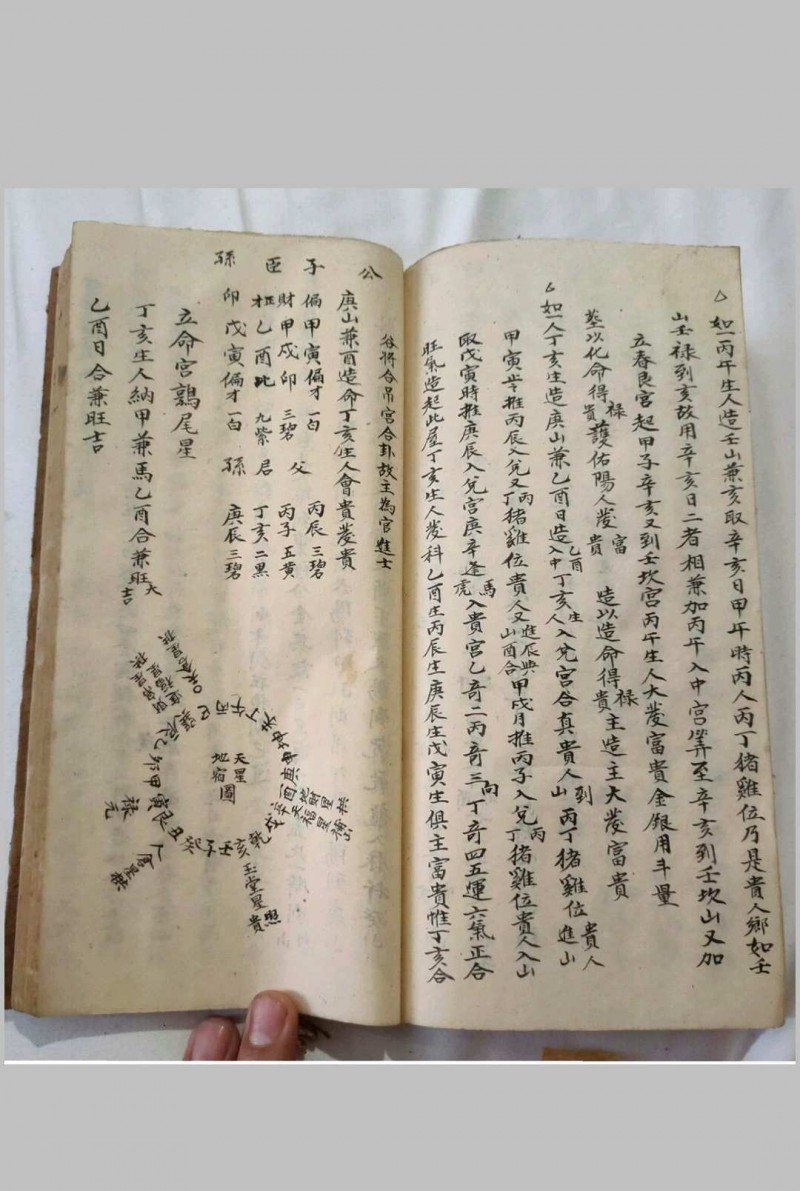 如一丙午生人造壬山兼亥取辛亥日甲午時丙人丙丁猪雞位乃是貴人鄉如壬
山壬祿到亥故用辛亥日二者相兼加丙午入中宮筭至辛亥到壬坎山又加
立春艮宮起甲子辛亥又到壬坎宮丙午生人大發富貴金銀用斗量
塟以化命得祿貴護佑陽人發富貴 造以造命得祿貴主造主大發富貴
如一人丁亥生造庚山兼乙酉日造乙酉入中丁亥生人入兌宮合真貴人到山丙丁猪雞位進山貴人
甲寅年推丙辰入兌又丙丁猪雞位貴人又進辰與山酉合甲戌月推丙子入兌丙丁猪雞位貴人入山
取戊寅時推庚辰入兌宮庚辛逢馬虎入貴宮乙奇二丙奇三向丁奇四五運六氣正合
旺氣造起此屋丁亥生人發科乙酉生丙辰生庚辰生戊寅生俱主富貴惟丁亥合
谷將合吊宮合卦故主為官進士
庚山兼酉造命丁亥生人會貴發貴
公 子 臣 孫
偏甲寅偏才 一白 父 丙辰 三碧
財甲戌卯 三碧 丙子 五黃
才乙酉比 九紫 君 丁亥 二黑
卯戊寅偏才 一白 孫 庚辰 三碧
立命宮鶉尾星
丁亥生人納甲兼馬乙酉合兼旺大吉
乙酉日合兼旺吉
天星
地宿
圖
壬子癸
丑艮寅甲卯乙辰巽巳丙午丁未坤申庚酉辛戌乾亥
地財星
天福星
玉堂星貴照